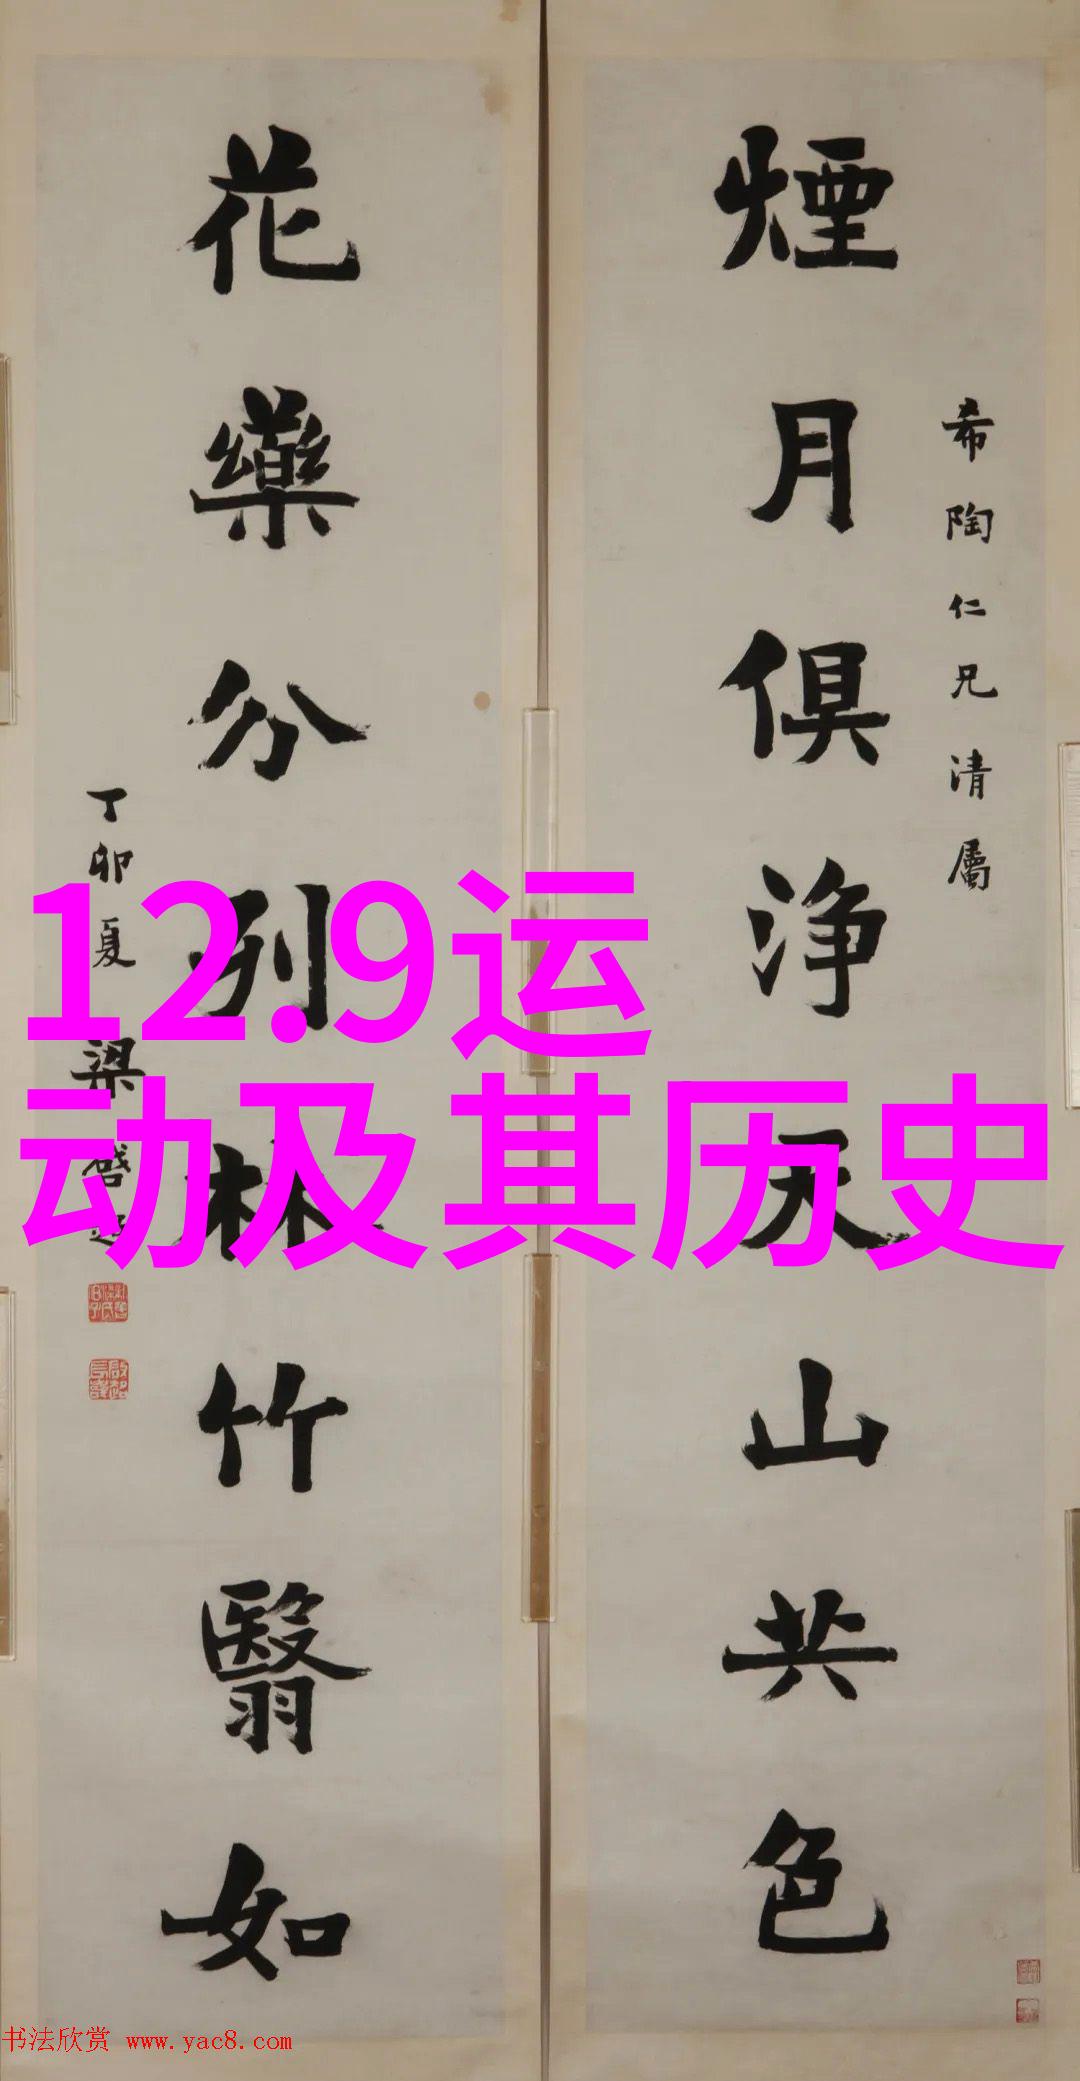 煙月俱浄天山共色
希陶仁兄清屬
花藥分列林竹翳如
丁卯夏 梁啓超
12.9运
动及其历史
书法欣赏 www.yac8.com